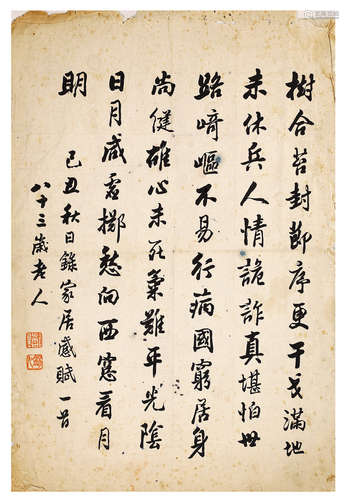 樹合苔封節序更干戈滿地
未休兵人情詭詐真堪怕世
路崎嶇不易行病國窮居身
尚健雄心未死氣難平光陰
日月咸虛擲愁向西窓看月
明
己丑秋日錄家居感賦一首
八十三歲老人